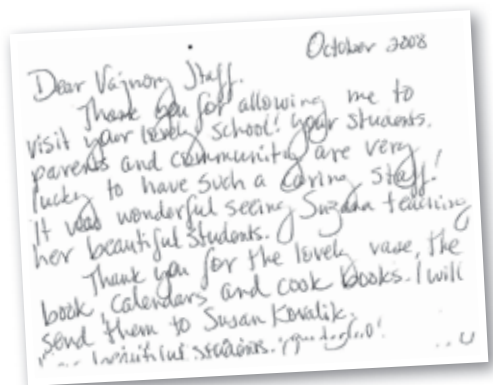 October 2008
Dear Vajnory Staff.
Thank you for allowing me to
visit your lovely school! Your students,
parents and community are very
lucky to have such a caring staff!
It was wonderful seeing Suzana teaching
her beautiful students.
Thank you for the lovely vase, the
book, calendars and cook books. I will
send them to Susan Kovalik.
beautiful students.